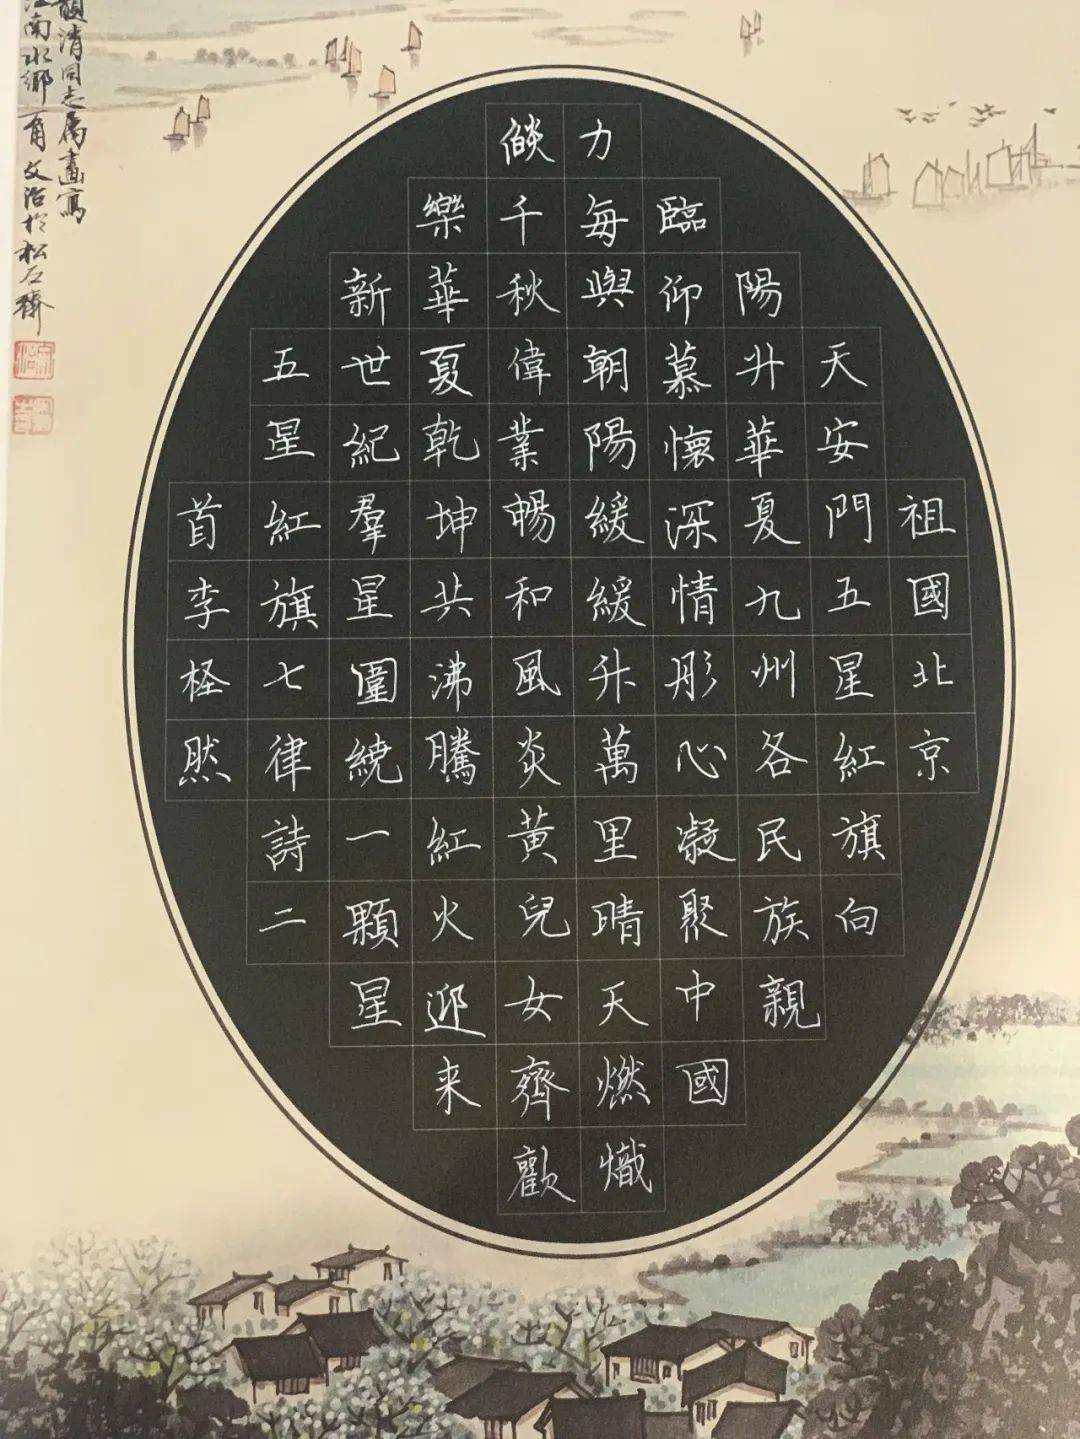 祖國北京
天安門五星紅旗向
陽升華夏九州各民族親
臨仰慕懷深情彤心凝聚中國
力每與朝陽緩緩升萬里晴天燃熾
燄千秋偉業暢和風炎黃兒女齊歡
樂華夏乾坤共沸騰紅火迎来
新世紀羣星圍繞一顆星
五星紅旗七律詩二
首李柽然
清同志属畫寫
江南水鄉一角文治於松石齋